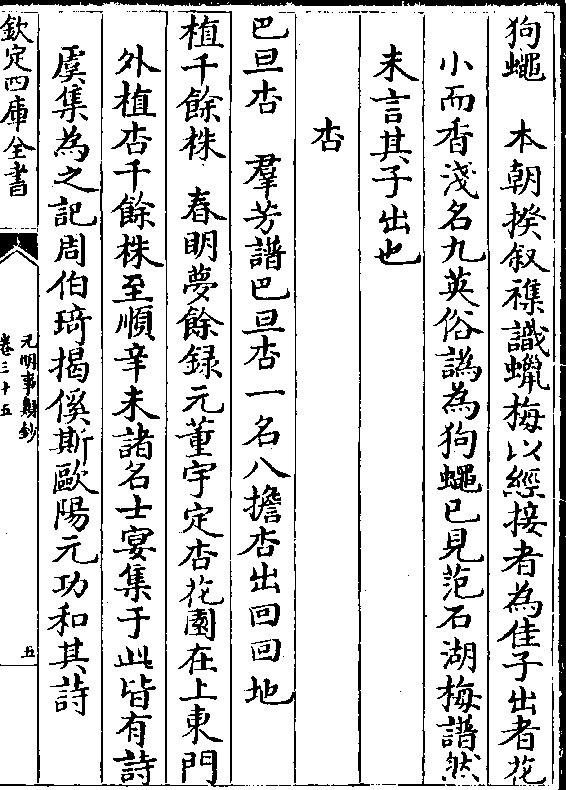 狗蠅　本朝揆叙襍識蠟梅以經接者為佳子出者花
小而香淺名九英俗譌為狗蠅已見范石湖梅譜然
未言其子出也
杏
巴旦杏　羣芳譜巴旦杏一名八擔杏出回回地
植千餘株　春明夢餘録元董宇定杏花園在上東門
外植杏千餘株至順辛未諸名士宴集于此皆有詩
虞集為之記周伯琦揭傒斯歐陽元功和其詩
欽定四庫全書
元明事類鈔
卷三十五
五